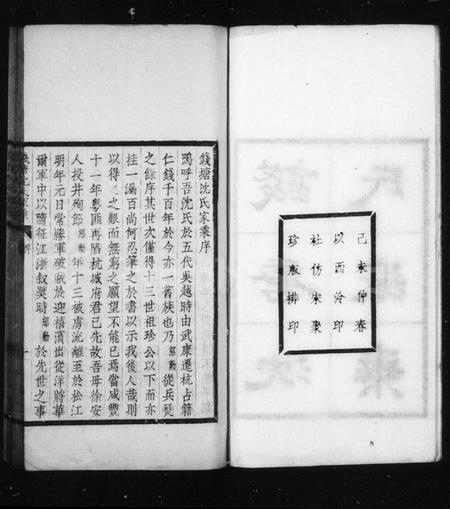 己未仲春
以西泠印
社仿宋聚
珍版排印
錢塘沈氏家乘序
嗚呼吾沈氏於五代吳越時由武康遷杭占籍
仁錢千百年於今亦一舊族也乃紹勳從兵燹
之餘序其世次僅得十三世祖珍公以下而亦
挂一漏百尚何忍筆之於書以示我後人哉則
以得之艱而無窮之願望不能已焉當咸豐
十一年粵匪再陷杭城府君已先故吾母徐安
人投井殉節紹勳年十三被虜流離至於松江
明年元日常勝軍破賊於迎禧濱出從洋將華
爾軍中以隨征江浙敘獎時紹勳於先世之事